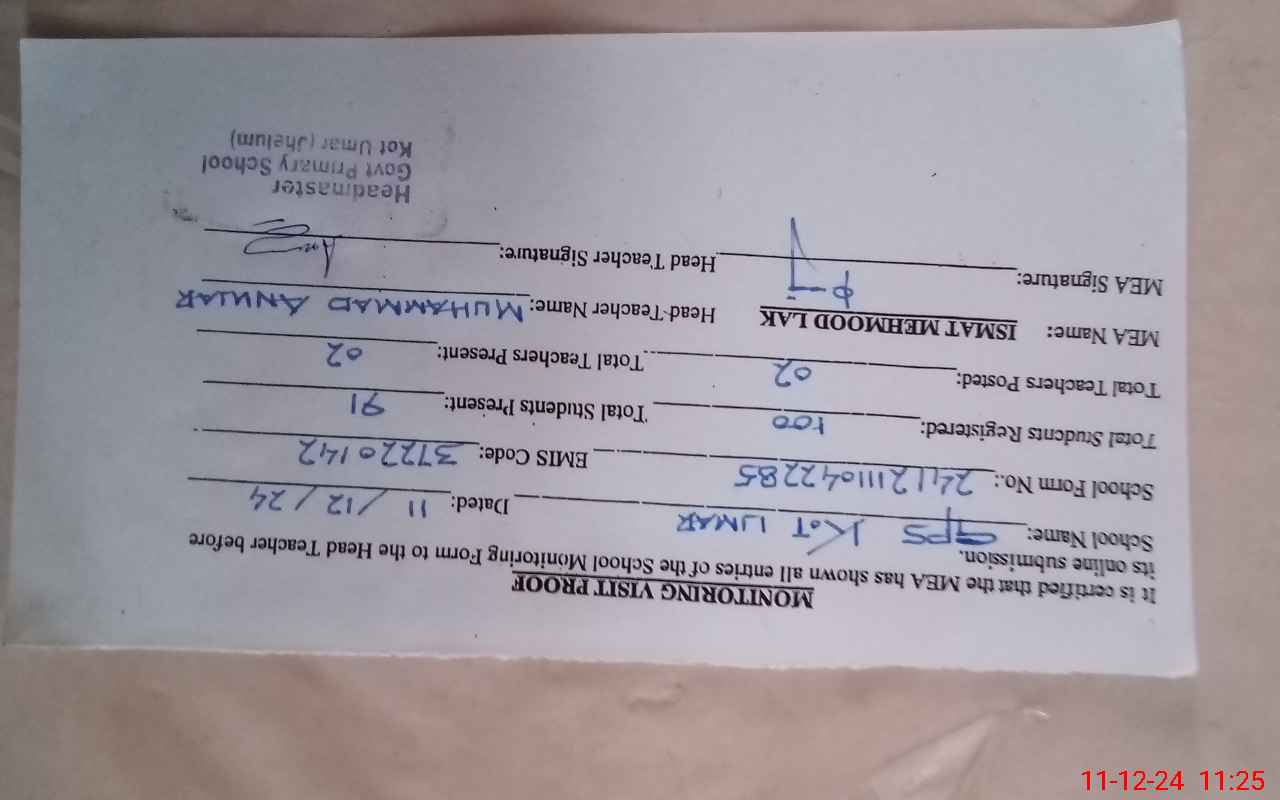 MONITORING VISIT PROOF
It is certified that the MEA has shown all entries of the School Monitoring Form to the Head Teacher before
its online submission.
School Name: GPS KOT UMAR Dated: 11/12/24
School Form No.: 2411211104 2285 EMIS Code: 37220142
Total Students Registered: 100 Total Students Present: 91
Total Teachers Posted: 02 Total Teachers Present: 02
MEA Name: ISMAT MEHMOOD LAK Head Teacher Name: MUHAMMAD ANWAR
MEA Signature: Head Teacher Signature:
Headmaster
Govt Primary School
Kot Umar (Jhelum)
11-12-24 11:25